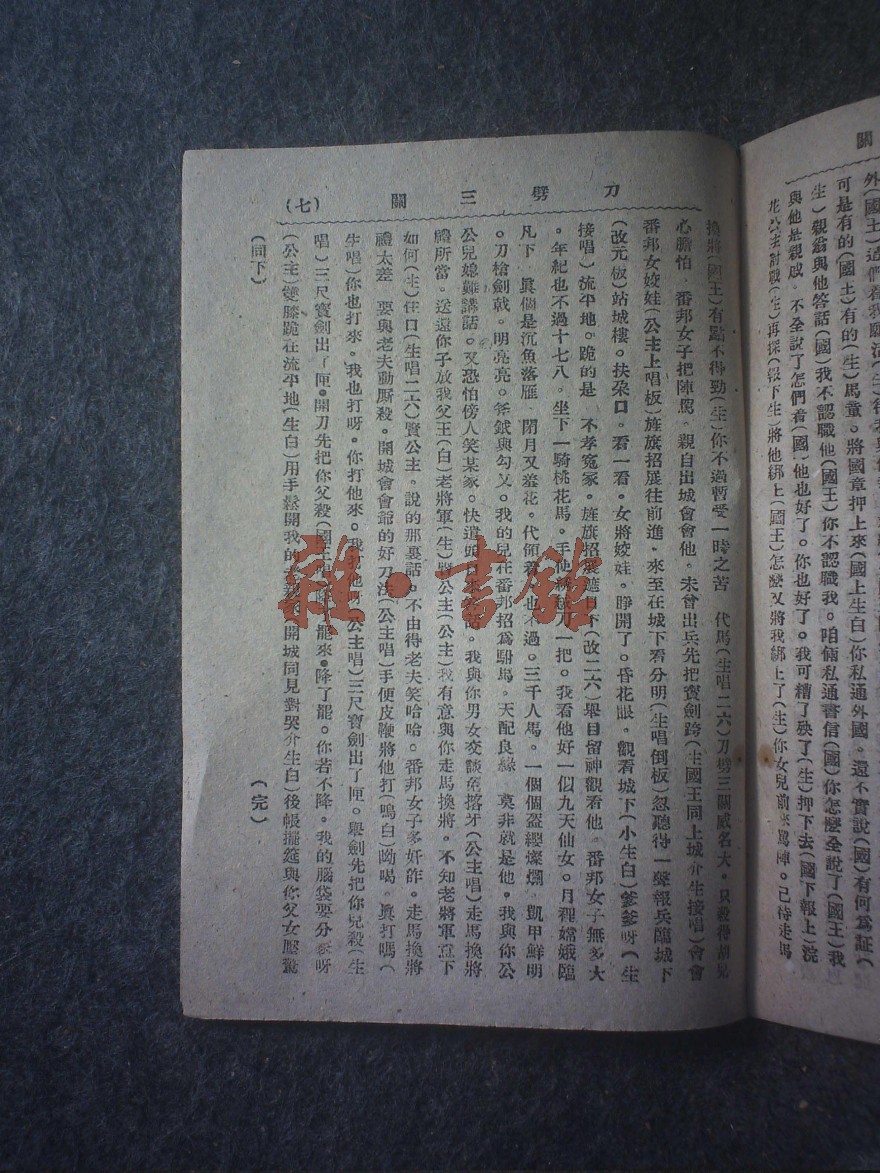 關
外(國王)這們
可是有的(國王)有的(生)馬童。將國章押上來(國上生白)你私通外國。還不實說(國)有何爲証(
生)親翁與他答話(國)我不認職他(國王)你不認職我。咱倆私通書信(國)你怎麼全說了(國王)我
與他是親戚。不全說了怎們着(國)他也好了。你也好了。我可糟了殃了(生)押下去(國下報上)浣
花公主討戰(生)再探(報下生)將他綁上(國王)怎麼又將我綁上了(生)你女兒前來罵陣。己待走馬
刀劈三關
(七)
換將(國王)有點不得勁(生)你不過暫受一時之苦 代馬(生唱二六)刀劈三關威名大。只殺得胡兒
心膽怕。番邦女子把陣罵。親自出城會會他。未曾出兵先把寶劍跨(生國王同上城介生接唱)會會
番邦女姣娃(公主上唱板)旌旗招展往前進。來至在城下看分明(生唱倒板)忽聽得一聲報兵臨城下
(改元板)站城樓。扶朶口。看一看。女將姣娃。睜開了。昏花眼。觀看城下(小生白)爹爹呀(生
接唱)流平地。跪的是 不孝寃家。旌旗招展遮日下(改二六)舉目留神觀看他。番邦女子無多大
。年紀也不過十七八。坐下一騎桃花馬。手使綉絨刀一把。我看他好一似九天仙女。月裡嫦娥臨
凡下 眞個是沉魚落雁 閉月又羞花。代領着 也不過。三千人馬。一個個盔纓燦爛。凱甲鮮明
。刀槍劍戟。明亮亮。斧鉞與勾叉。我的兒在番邦招爲駙馬。天配良緣 莫非就是他。我與你公
公兒媳難講話。又恐怕傍人笑某家。快遣頭目來答話。我與你男女交談莫搭牙(公主唱)走馬換將
禮所當。送還你子放我父王(白)老將軍(生)賢公主(公主)我有意與你走馬換將。不知老將軍意下
如何(生)住口(生唱二六)賢公主。說的那裏話。不由得老夫笑哈哈。番邦女子多奸詐。走馬換將
禮太差 要與老夫動厮殺。開城會會爺的好刀法(公主唱)手使皮鞭將他打(嗚白)呦喝。眞打嗎(
生唱)你也打來。我也打呀。你打他來。我打他呀(公主唱)三尺寶劍出了匣。舉劍先把你兒殺(生
唱)三尺寶劍出了匣。開刀先把你父殺(國王白)降了罷來。降了罷。你若不降。我的腦袋要分家呀
(公主)雙膝跪在流平地(生白)用手鬆開我的老親家。開城同見對哭介生白)後帳擺筵與你父女壓驚
(同下)
(完)
雜·書館